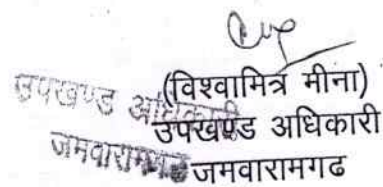 (विश्वामित्र मीना)
उपखण्ड अधिकारी
जमवारामगढ
उपखण्ड अधिकारी
जमवारामगढ